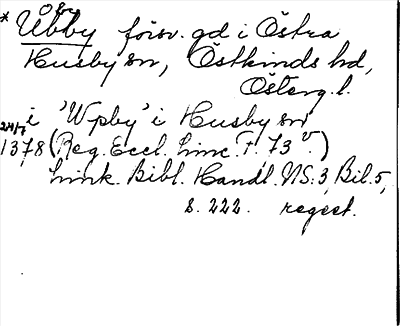 * Ubby försv. gd i Östra
Husby sn, Östkinds hd,
Österg. l.
i 'Wpby' i Husby sn
24/7 1378 (Reg. Eccl. Linc. F, 73 v.)
Link. Bibl. Handl. NS: 3, Bil. 5,
s. 222. regest.